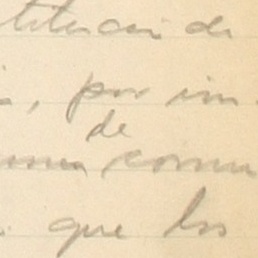 titución de
, por un
de
comu
que los